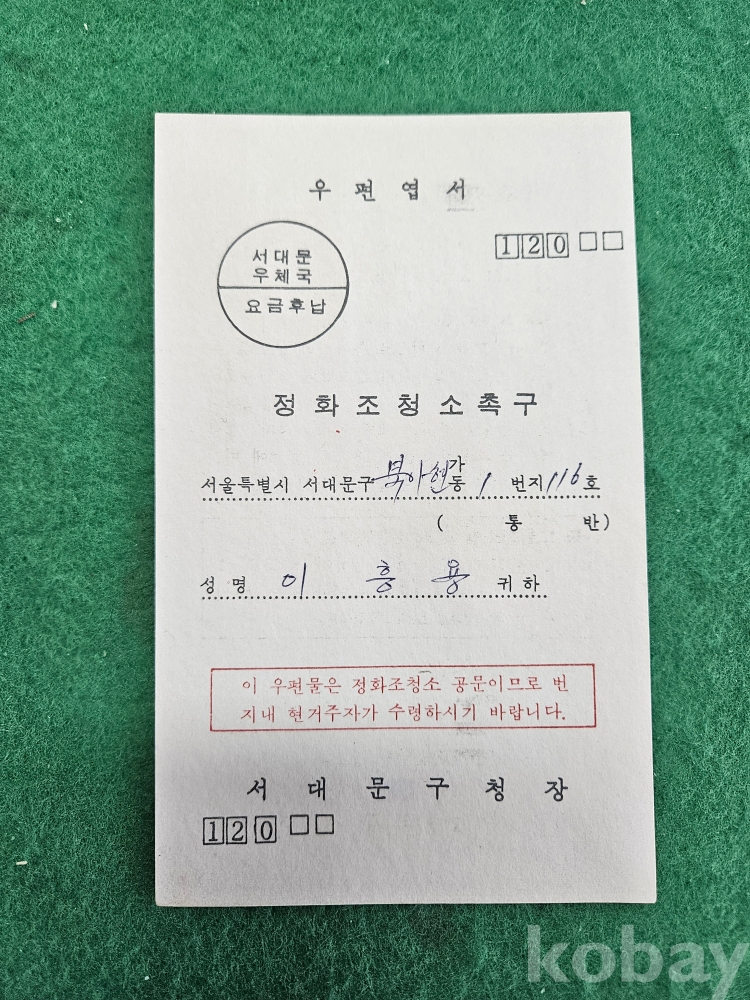 우 편 엽 서
120□□
서대문
우체국
요금후납
정 화 조 청 소 촉 구
서울특별시 서대문구 북아현 가 동 1 번지 116 호
( 통 반)
성 명 이 흥 용 귀 하
이 우편물은 정화조청소 공문이므로 번
지내 현거주자가 수령하시기 바랍니다.
서 대 문 구 청 장
120□□
kobay